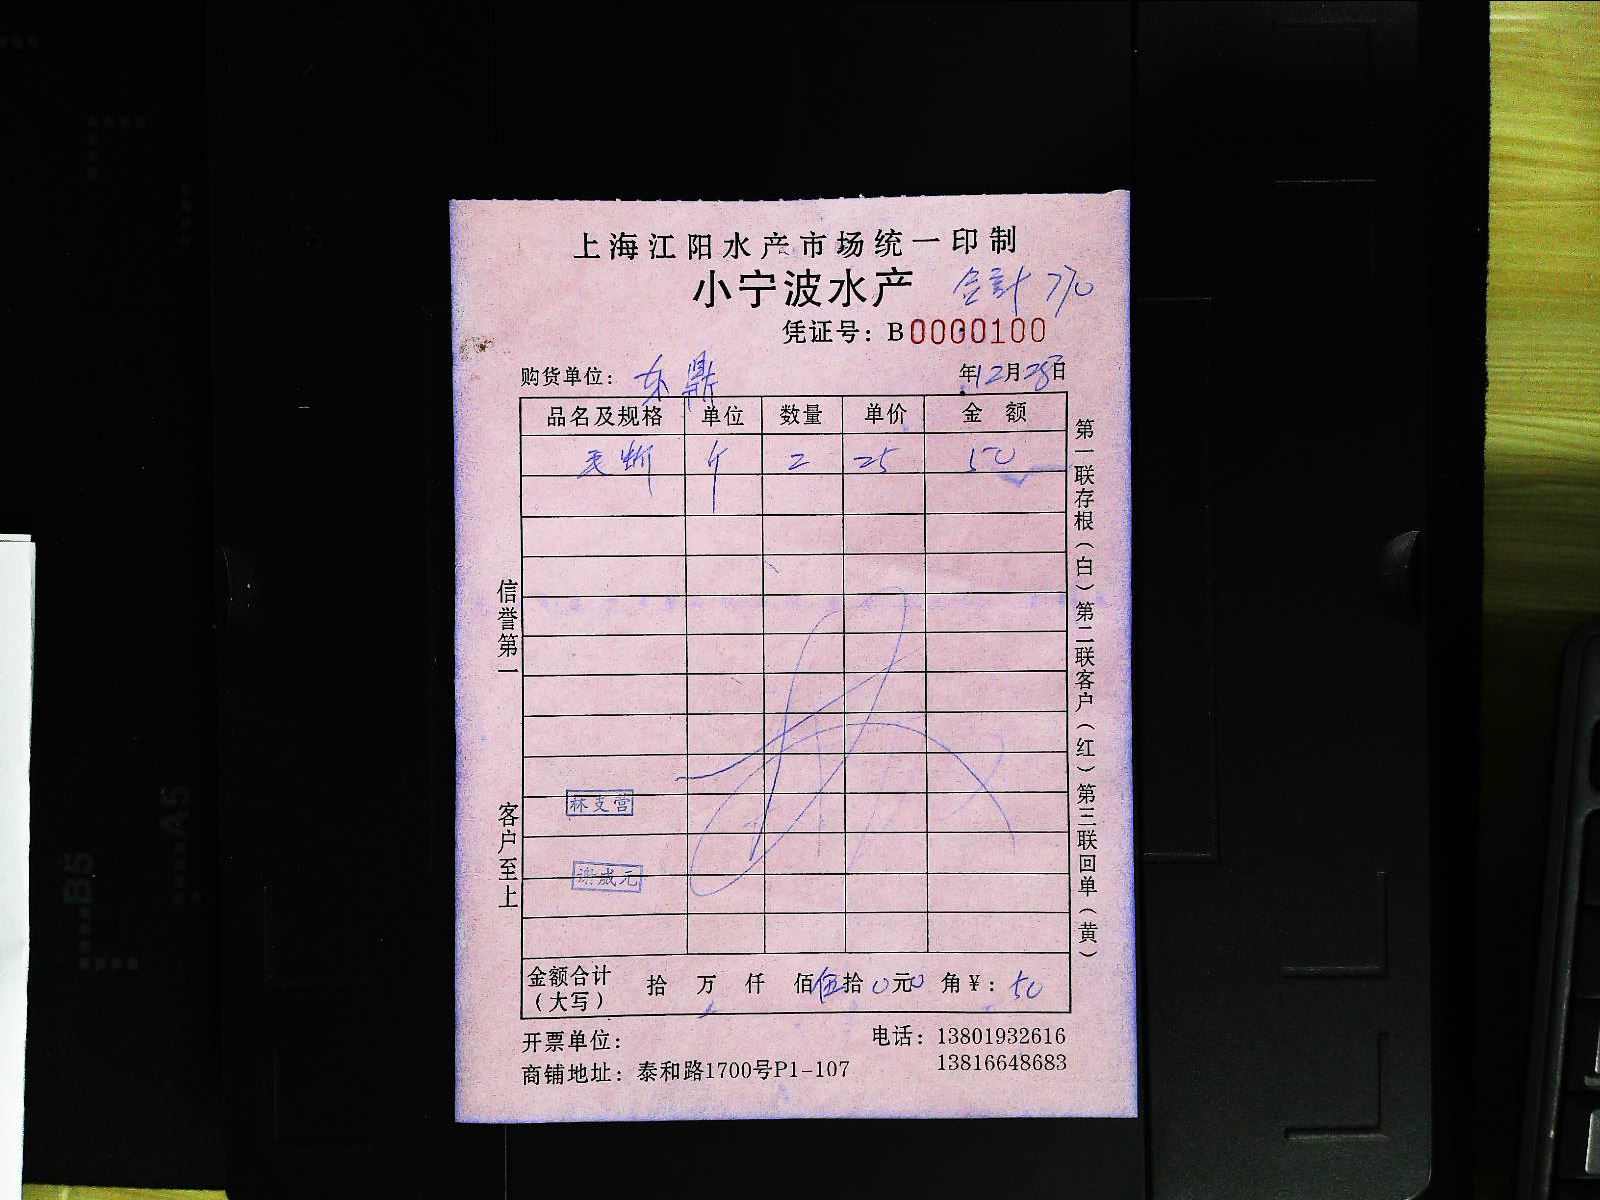 上海江阳水产市场统一印制
小宁波水产 合計 770
凭证号：B0000100
购货单位：东鼎 年12月28日
品名及规格 单位 数量 单价 金额
毛蚶 斤 2 25 50
信誉第一
客户至上
第一联存根（白）第二联客户（红）第三联回单（黄）
林支营
谢成元
金额合计（大写） 拾 万 仟 佰 伍拾 0元 0角 ¥：50
开票单位： 电话：13801932616
13816648683
商铺地址：泰和路1700号P1-107
B5
A5